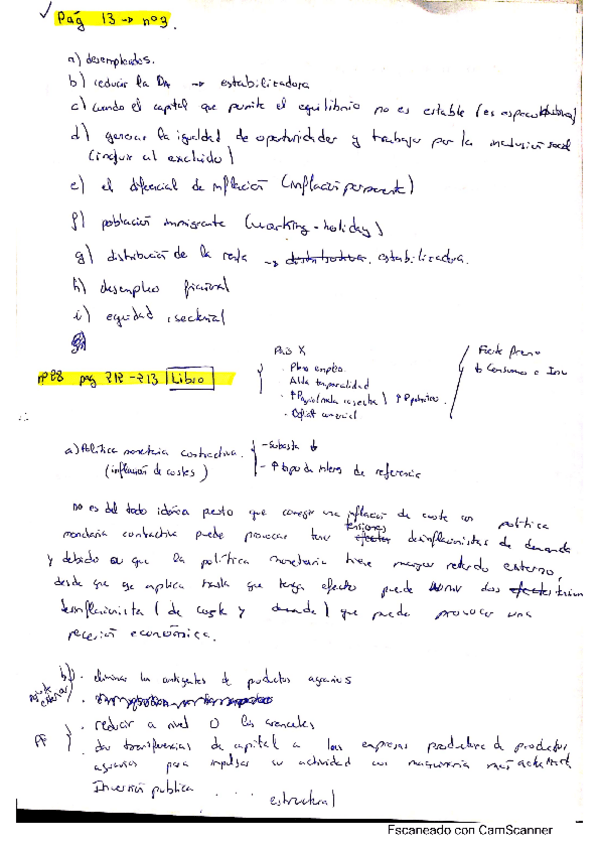 Pág 13 → nº3.
a) desempleados.
b) reducir la DA → estabilizadora
c) cuando el capital que permite el equilibrio no es estable (es especulativo)
d) generar la igualdad de oportunidades y trabajar por la inclusión social
(incluir al excluido)
e) el diferencial de inflación (inflación persistente)
f) población inmigrante (working-holiday)
g) distribución de la renta → estabilizadora.
h) desempleo friccional
i) equidad sectorial
nº88 pag 212-213 Libro
País X
· Pleno empleo
· Alta temporalidad
· Déficit comercial
b Consumo e Inv
a) Política monetaria contractiva. - Subasta ↓
(inflación de costes) - ↑ tipo de interés de referencia
no es del todo idónea puesto que corregir una inflación de coste con política
monetaria contractiva puede provocar tener tensiones desinflacionistas de demanda
y debido a que la política monetaria tiene mayor retardo externo,
desde que se aplica hasta que tenga efecto puede dos
desinflacionista (de coste y demanda) que puede provocar una
recesión económica.
b) · eliminar los contigentes de productos agrarios
· reducir a nivel 0 los aranceles
PF · dar transferencias de capital a las empresas productoras de productos
agrarios para impulsar su actividad con maquinaria más
Inversión pública .... estructural
Escaneado con CamScanner